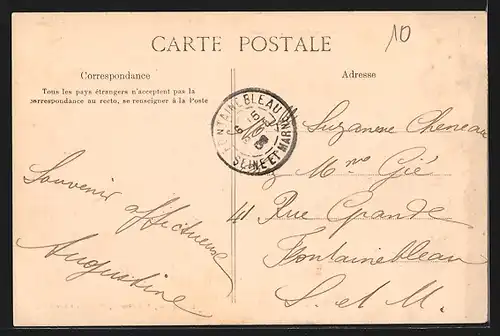 10
CARTE POSTALE
Correspondance
Tous les pays étrangers n'acceptent pas la
correspondance au recto, se renseigner à la Poste
Adresse
FONTAINEBLEAU
SEINE ET MARNE
Souvenir
affectueuse
Augustine
Suzanne Cheneau
Mme Gié
41 Rue Grande
Fontainebleau
S. et M.